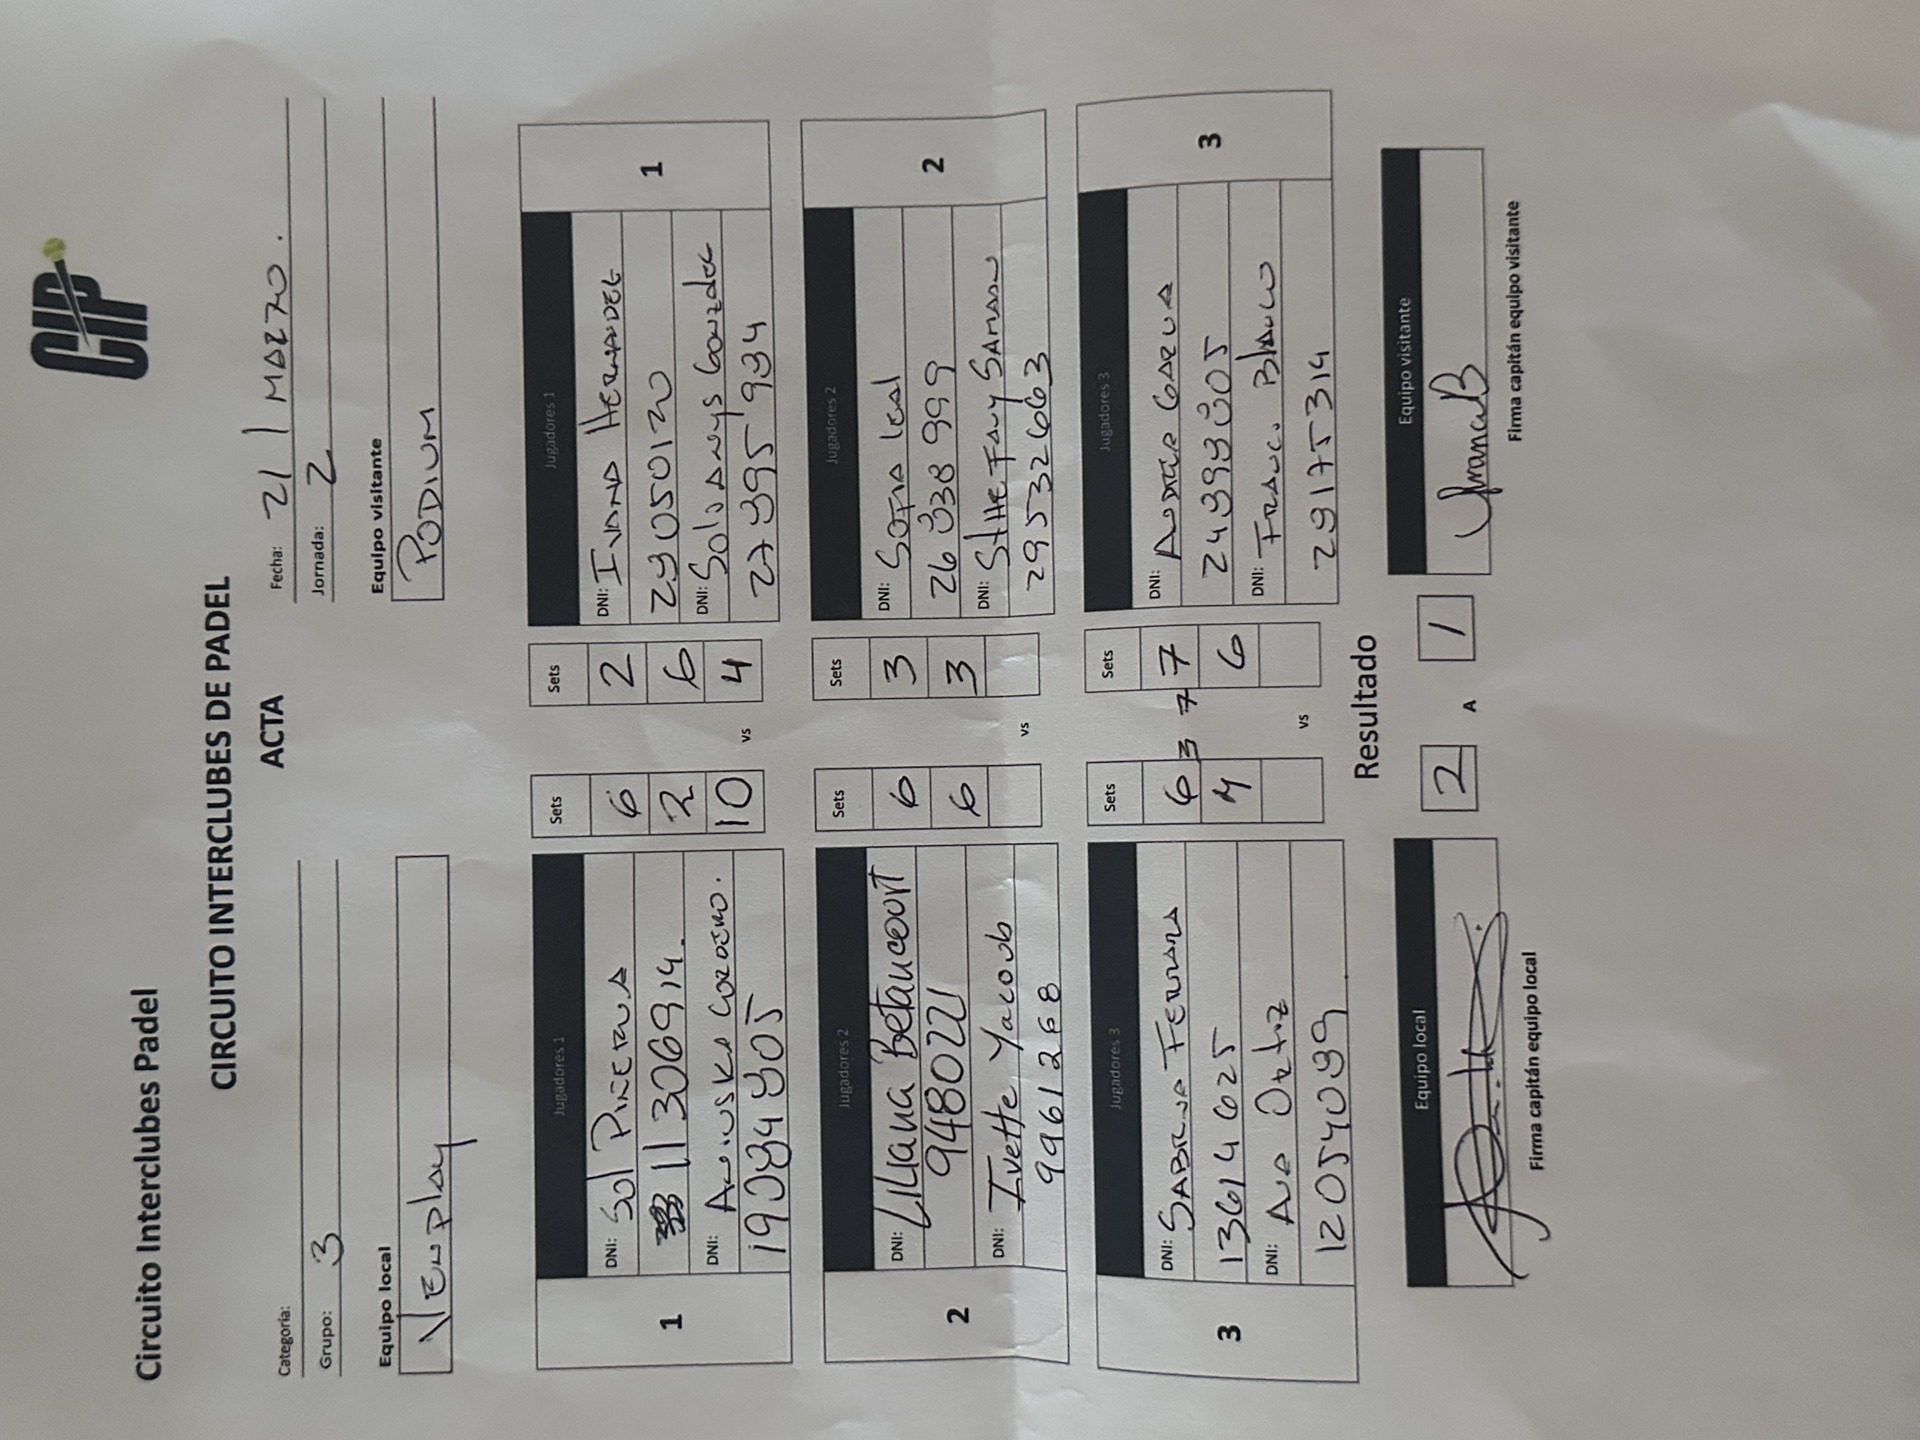 CIP
Circuito Interclubes Padel
CIRCUITO INTERCLUBES DE PADEL
ACTA
Categoría:
Fecha: 21 / MARZO.
Grupo: 3
Jornada: 2
Equipo local
Equipo visitante
VENPLAY
PODIUM
Jugadores 1
Sets
Sets
Jugadores 1
1
DNI: Sol Piñerua
6
2
DNI: IVANA HERNANDEZ
1
113069914.
2
6
29050120
DNI: ANIUSKA CORDERO.
10
vs
4
DNI: Solsanys Gonzalez
19084805
27395934
Jugadores 2
Sets
Sets
Jugadores 2
2
DNI: Liliana Betancourt
6
3
DNI: SOFIA leal
2
9480221
6
3
26038999
DNI: Ivette Yacoub
vs
DNI: SthefANY SAMAAN
9961268
29532663
Jugadores 3
Sets
Sets
Jugadores 3
3
DNI: SABRINA FERRARA
6 3 7 7
DNI: ANDREA GARCIA
3
13614625
4
6
24999005
DNI: ANA Ortiz
vs
DNI: FRANC. BlANCO
12054089
29175314
Resultado
Equipo local
2 A 1
Equipo visitante
Firma capitán equipo local
Firma capitán equipo visitante